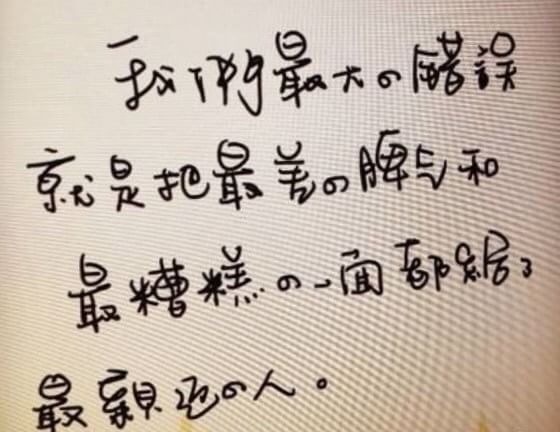 我們最大の錯誤
就是把最差の脾氣和
最糟糕の一面都給了
最親近の人。